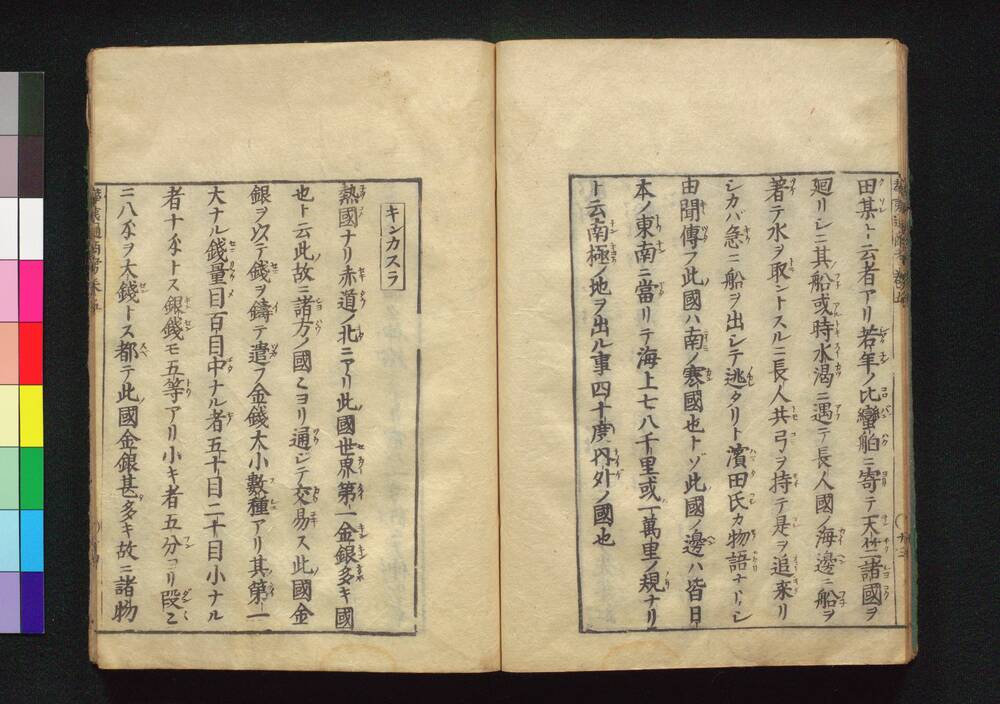 田某ト云者アリ若年ノ比蠻舶ニ寄テ天竺諸國ヲ
廻リシニ其船或時水渇ニ遇テ長人國ノ海邊ニ船ヲ
著テ水ヲ取ントスルニ長人共弓ヲ持テ是ヲ追来リ
シカバ急ニ船ヲ出シテ逃タリト濱田氏カ物語ナリシ
由聞傳フ此國ハ南ノ寒國也トゾ此國ノ邊ハ皆日
本ノ東南ニ當リテ海上七八千里或一萬里ノ規ナリ
ト云南極ノ地ヲ出ル事四十度内外ノ國也
キンカスラ
熱國ナリ赤道ノ北ニアリ此國世界第一金銀多キ國
也ト云此故ニ諸方ノ國々ヨリ通シテ交易ス此國金
銀ヲ以テ錢ヲ鑄テ遣フ金錢大小數種アリ其第一
大ナル錢量目百目中ナル者五十目二十目小ナル
者十匁トス銀錢モ五等アリ小キ者五分ヨリ段々
ニ八匁ヲ大錢トス都テ此國金銀甚多キ故ニ諸物